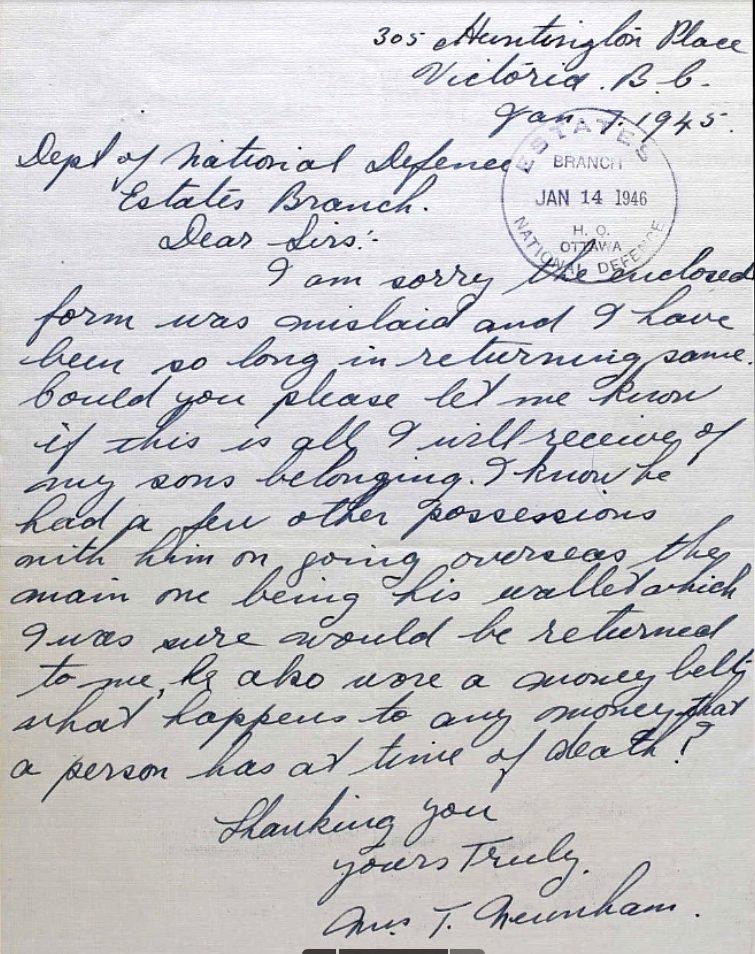 305 Huntington Place
Victoria. B.C.
Jan 7. 1945.
ESTATES
BRANCH
JAN 14 1946
H. Q.
OTTAWA
NATIONAL DEFENCE
Dept of National Defence
Estates Branch.
Dear Sirs:-
I am sorry the enclosed
form was mislaid and I have
been so long in returning same.
Could you please let me know
if this is all I will receive of
my sons belonging. I know he
had a few other possessions
with him on going overseas the
main one being his wallet which
I was sure would be returned
to me, he also wore a money belt,
what happens to any money that
a person has at time of death?
Thanking you
yours Truly.
Mrs T. Newnham.